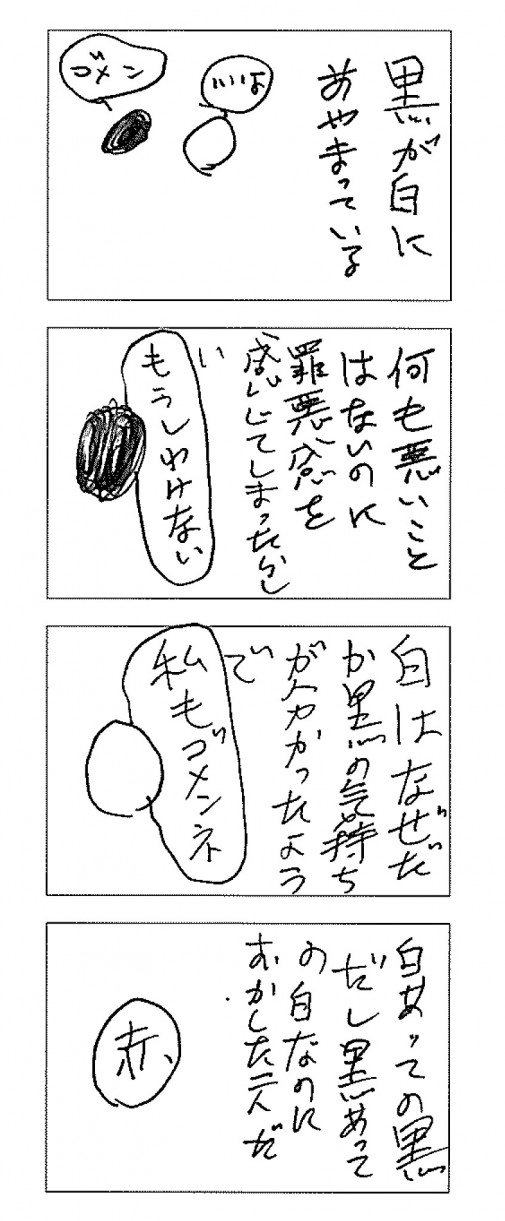 黒が白に
あやまっている
いいよ
ゴメン
何も悪いこと
はないのに
罪悪感を
感じてしまったらし
い
もうしわけない
白はなぜだ
か黒の気持ち
がわかったよう
で
私もゴメンネ
白あっての黒
だし黒あって
の白なのに
おかしな二人だ
赤、